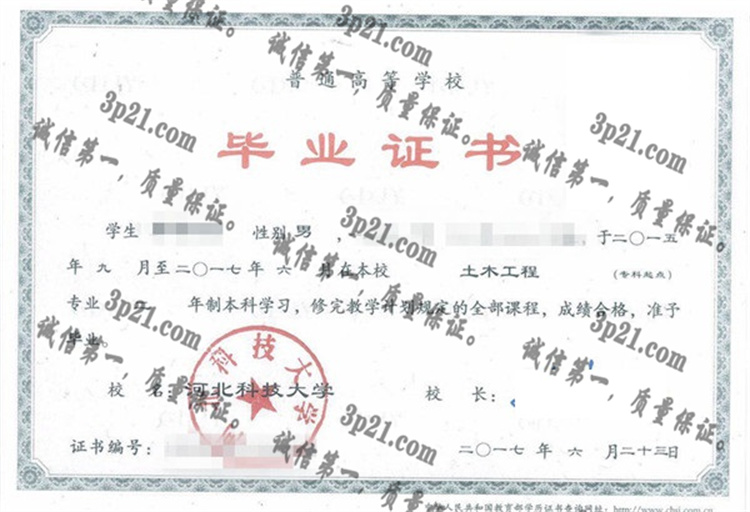 普通高等学校
毕业证书
学生 性别 男 , , 于二〇一五
年 九 月至二〇一七年 六 月在本校 土木工程 (专科起点)
专业 年制本科学习，修完教学计划规定的全部课程，成绩合格，准予
毕业。
校 名：河北科技大学 校 长：
科技大学
证书编号： 二〇一七年 六 月二十三日
人民共和国教育部学历证书查询网址：http://www.chsi.com.cn
3p21.com
诚信第一，质量保证。
3p21.com
诚信第一，质量保证。
3p21.com
诚信第一，质量保证。
3p21.com
诚信第一，质量保证。
3p21.com
诚信第一，质量保证。
3p21.com
诚信第一，质量保证。
3p21.com
诚信第一，质量保证。
质量保证。